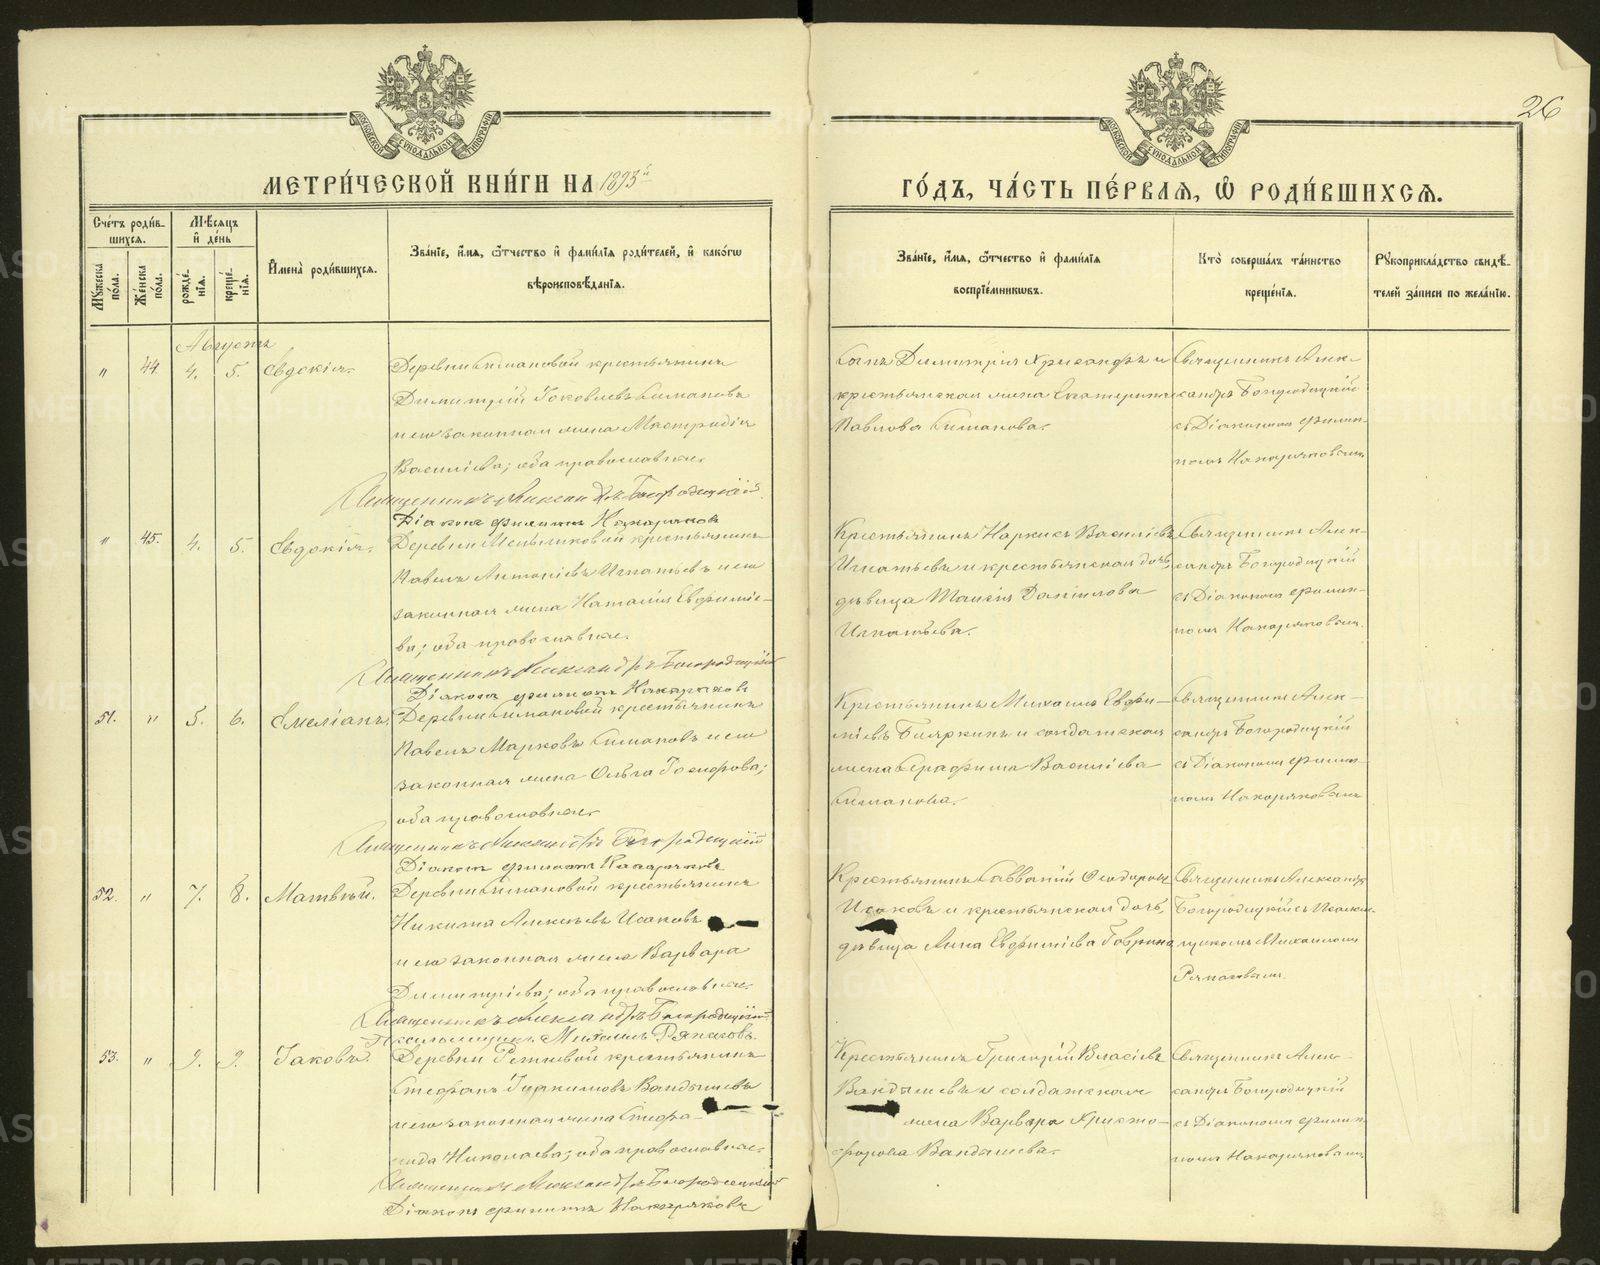 26
МОСКОВСКОЙ СѴНОДАЛЬНОЙ ТИПОГРАФІИ
МОСКОВСКОЙ СѴНОДАЛЬНОЙ ТИПОГРАФІИ
МЕТРИ́ЧЕСКОЙ КНИ́ГИ НА 1893й
ГО́ДЪ, ЧА́СТЬ ПЕ́РВАЯ, Ѡ҆ РОДИ́ВШИХСѦ.
Сче́тъ роди́в-
шихсѧ.
Мѣ́сѧцъ
и҆ де́нь
Мꙋ́жеска по́ла.
Же́нска по́ла.
рожде́нїѧ.
креще́нїѧ.
И҆мена̀ роди́вшихсѧ.
Зва́нїе, и҆́мѧ, ѻ҆́тчество и҆ фами́лїѧ роди́телей, и҆ како́гѡ
вѣроисповѣ́данїѧ.
Зва́нїе, и҆́мѧ, ѻ҆́тчество и҆ фами́лїѧ
воспрїе́мникѡвъ.
Кто̀ соверша́лъ та́инство
креще́нїѧ.
Рꙋкоприкла́дство свидѣ́-
телей за́писи по жела́нїю.
Августъ
" 44. 4. 5. Евдокія.
Деревни Симановой крестьянинъ
Димитрій Іаковлевъ Симановъ
и его законная жена
Василіева; оба православные.
Священникъ Александръ Богородицкій
Діаконъ Филиппъ Накаряковъ
Сынъ Димитрія Хрисанфъ и
крестьянская жена Екатерина
Павлова Симанова.
Священникъ Алек-
сандръ Богородицкій
съ Діакономъ Филип-
помъ Накаряковымъ
" 45. 4. 5. Евдокія.
Деревни Мельниковой крестьянинъ
Павелъ Антоніевъ Игнатьевъ и его
законная жена Наталія Евфиміе-
ва; оба православные.
Священникъ Александръ Богородицкій
Діаконъ Филиппъ Накаряковъ
Крестьянинъ Наркисъ Василіевъ
Игнатьевъ и крестьянская дочь,
дѣвица Таисія Даніилова
Игнатьева.
Священникъ Алек-
сандръ Богородицкій
съ Діакономъ Филип-
помъ Накаряковымъ.
51. " 5. 6. Емеліанъ.
Деревни Симановой крестьянинъ
Павелъ Марковъ Симановъ и его
законная жена Ольга Іосифова;
оба православные.
Священникъ Александръ Богородицкій
Діаконъ Филиппъ Накаряковъ
Крестьянинъ Михаилъ Евфи-
міевъ Бояркинъ и солдатская
жена Серафима Василіева
Симанова.
Священникъ Алек-
сандръ Богородицкій
съ Діакономъ Филип-
помъ Накаряковымъ
52. " 7. 8. Матвѣй.
Деревни Симановой крестьянинъ
Никита Алексѣевъ Исаковъ
и его законная жена Варвара
Димитріева; оба православные.
Священникъ Александръ Богородицкій
Псаломщикъ Михаилъ Ряпасовъ.
Крестьянинъ Савватій Ѳеодоровъ
Исаковъ и крестьянская дочь,
дѣвица Анна Евфиміева Гаврина
Священникъ Александръ
Богородицкій съ Псалом-
щикомъ Михаиломъ
Ряпасовымъ.
53. " 9. 9. Іаковъ.
Деревни Ретневой крестьянинъ
Стефанъ Вандышевъ
и его законная жена Стефа-
нида Николаева; оба православные.
Священникъ Александръ Богородицкій
Діаконъ Филиппъ Накаряковъ
Крестьянинъ Григорій Власіевъ
Вандышевъ и солдатская
жена Варвара Христо-
форова Вандышева.
Священникъ Алек-
сандръ Богородицкій
съ Діакономъ Филип-
помъ Накаряковымъ